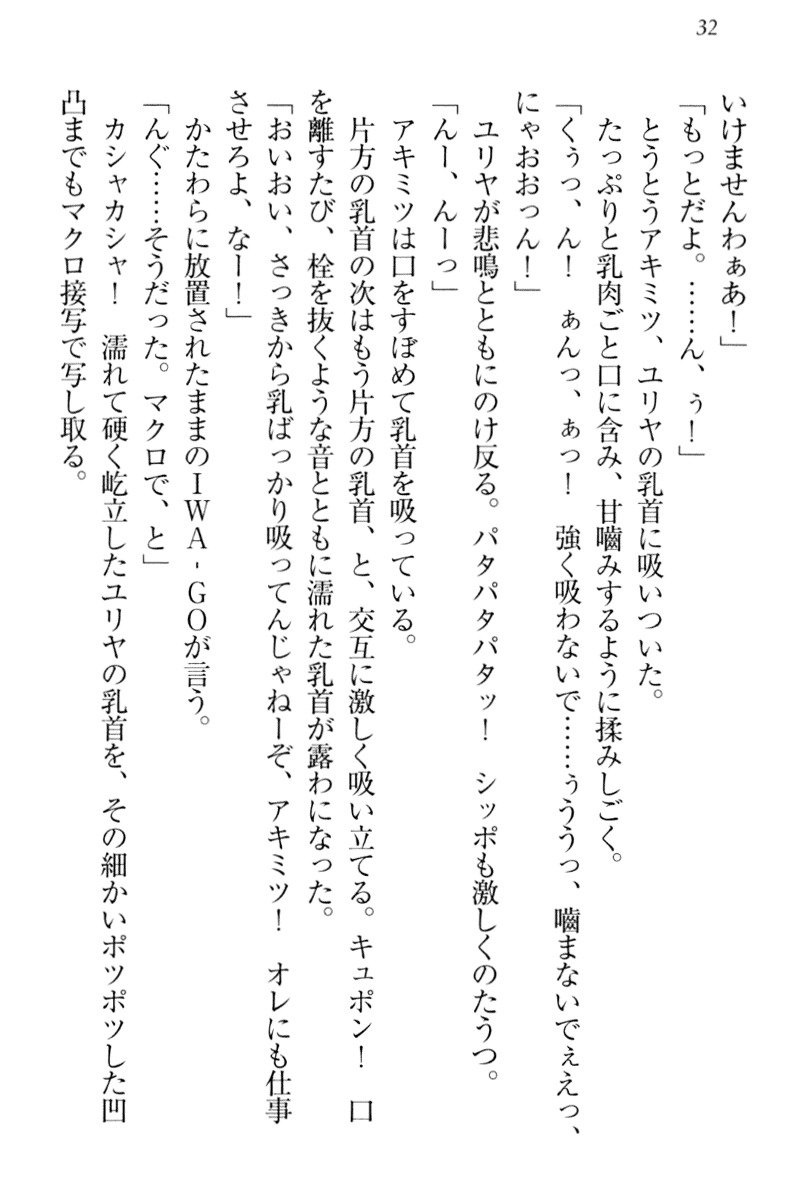 32
いけませんわぁあ！」
「もっとだよ。……ん、ぅ！」
とうとうアキミツ、ユリヤの乳首に吸いついた。
たっぷりと乳肉ごと口に含み、甘嚙みするように揉みしごく。
「くぅっ、ん！　ぁんっ、ぁっ！　強く吸わないで……ぅううっ、嚙まないでぇえっ、
にゃおおっん！」
ユリヤが悲鳴とともにのけ反る。パタパタパタッ！　シッポも激しくのたうつ。
「んー、んーっ」
アキミツは口をすぼめて乳首を吸っている。
片方の乳首の次はもう片方の乳首、と、交互に激しく吸い立てる。キュポン！　口
を離すたび、栓を抜くような音とともに濡れた乳首が露わになった。
「おいおい、さっきから乳ばっかり吸ってんじゃねーぞ、アキミツ！　オレにも仕事
させろよ、なー！」
かたわらに放置されたままのＩＷＡ‐ＧＯが言う。
「んぐ……そうだった。マクロで、と」
カシャカシャ！　濡れて硬く屹立したユリヤの乳首を、その細かいポツポツした凹
凸までもマクロ接写で写し取る。